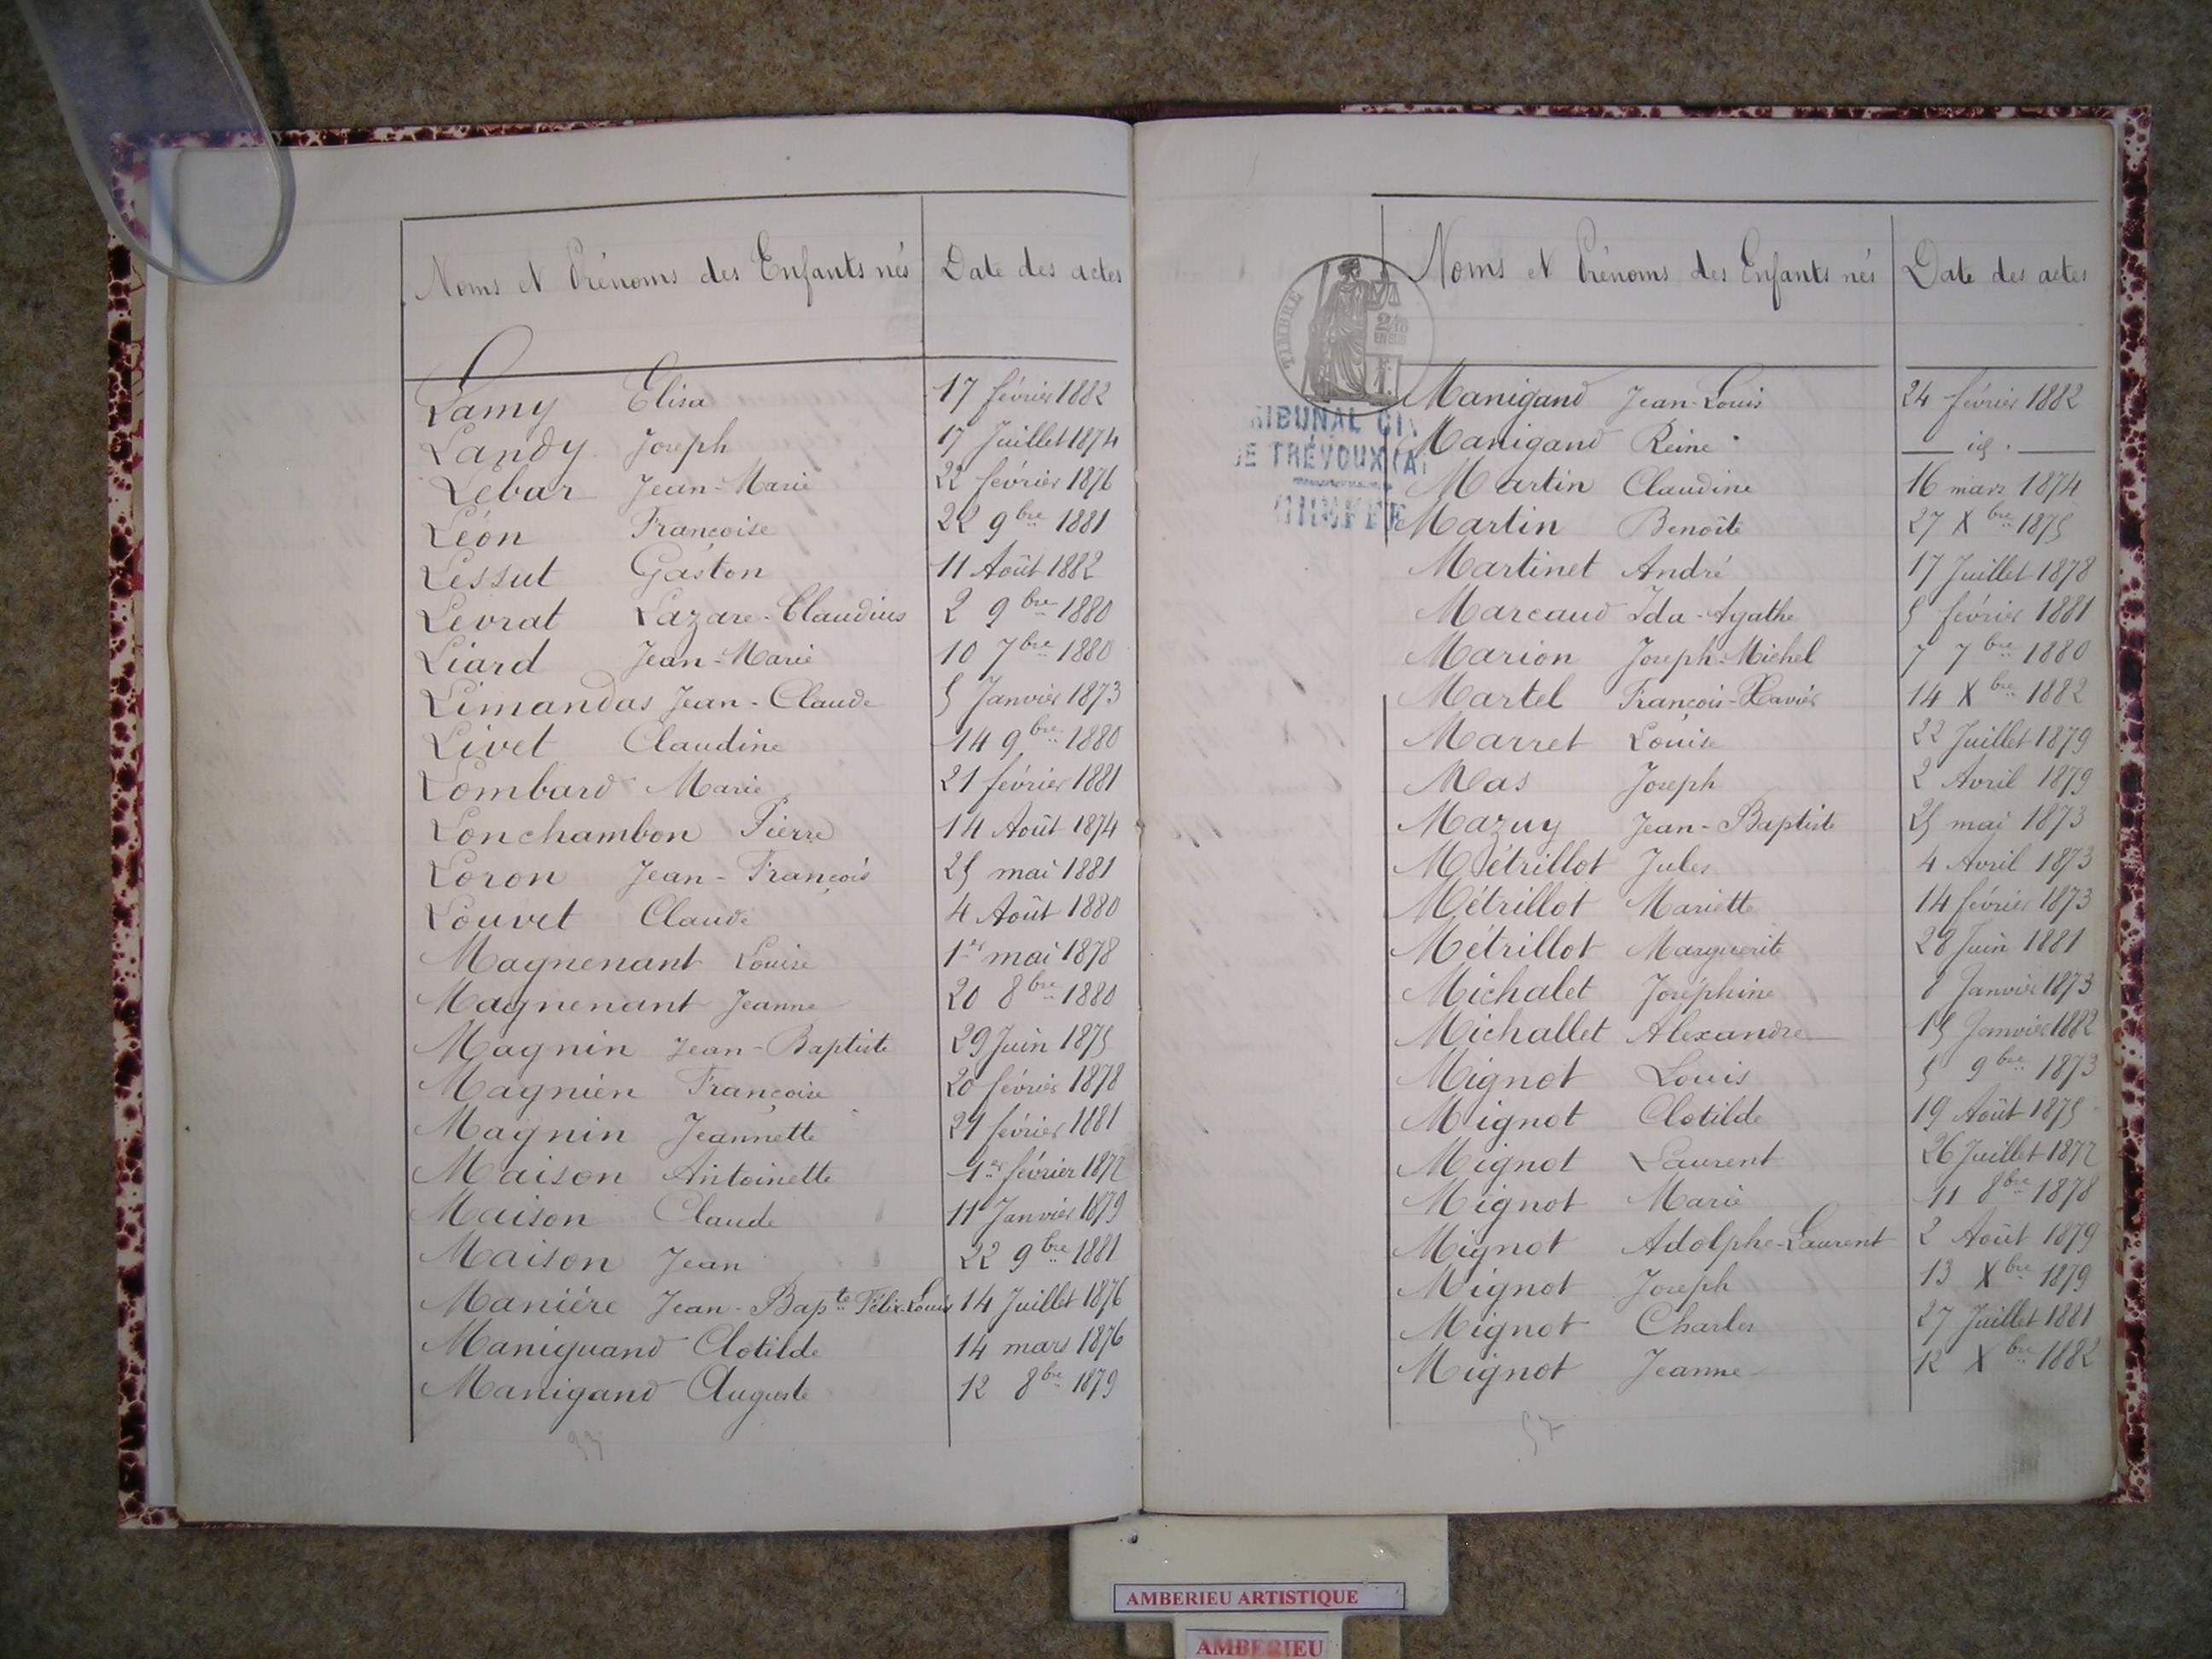 Noms et Prénoms des Enfants nés Date des actes
Lamy Elisa 17 février 1882
Landy Joseph 17 Juillet 1874
Lebar Jean-Marie 22 février 1876
Léon Françoise 22 9bre 1881
Lessut Gaston 11 Août 1882
Levrat Lazare-Claudius 2 9bre 1880
Liard Jean-Marie 10 7bre 1880
Limandas Jean-Claude 5 Janvier 1873
Livet Claudine 14 9bre 1880
Lombard Marie 21 février 1881
Lonchambon Pierre 14 Août 1874
Loron Jean-François 25 mai 1881
Louvet Claude 4 Août 1880
Magnenant Louise 1er mai 1878
Magnenant Jeanne 20 8bre 1880
Magnin Jean-Baptiste 29 Juin 1875
Magnien Françoise 20 février 1878
Magnin Jeannette 21 février 1881
Maison Antoinette 1er février 1872
Maison Claude 11 Janvier 1879
Maison Jean 22 9bre 1881
Maniére Jean-Bapte Félix-Louis 14 Juillet 1876
Maniguand Clotilde 14 mars 1876
Manigand Auguste 12 8bre 1879
Noms et Prénoms des Enfants nés Date des actes
TIMBRE
RIBUNAL CI
DE TRÉVOUX (A
GREFFE
Manigand Jean-Louis 24 février 1882
Manigand Reine id.
Martin Claudine 16 mars 1874
Martin Benoîte 27 Xbre 1875
Martinet André 17 Juillet 1878
Marcaud Ida-Agathe 5 février 1881
Marion Joseph-Michel 7 7bre 1880
Martel François-Xavier 14 Xbre 1882
Marret Louise 22 Juillet 1879
Mas Joseph 2 Avril 1879
Mazuy Jean-Baptiste 25 mai 1873
Métrillot Jules 4 Avril 1873
Métrillot Mariette 14 février 1873
Métrillot Marguerite 28 Juin 1881
Michalet Joséphine 8 Janvier 1873
Michallet Alexandre 15 Janvier 1882
Mignot Louis 5 9bre 1873
Mignot Clotilde 19 Août 1875
Mignot Laurent 26 Juillet 1877
Mignot Marie 11 8bre 1878
Mignot Adolphe-Laurent 2 Août 1879
Mignot Joseph 13 Xbre 1879
Mignot Charles 27 Juillet 1881
Mignot Jeanne 12 Xbre 1882
AMBERIEU ARTISTIQUE
AMBERIEU